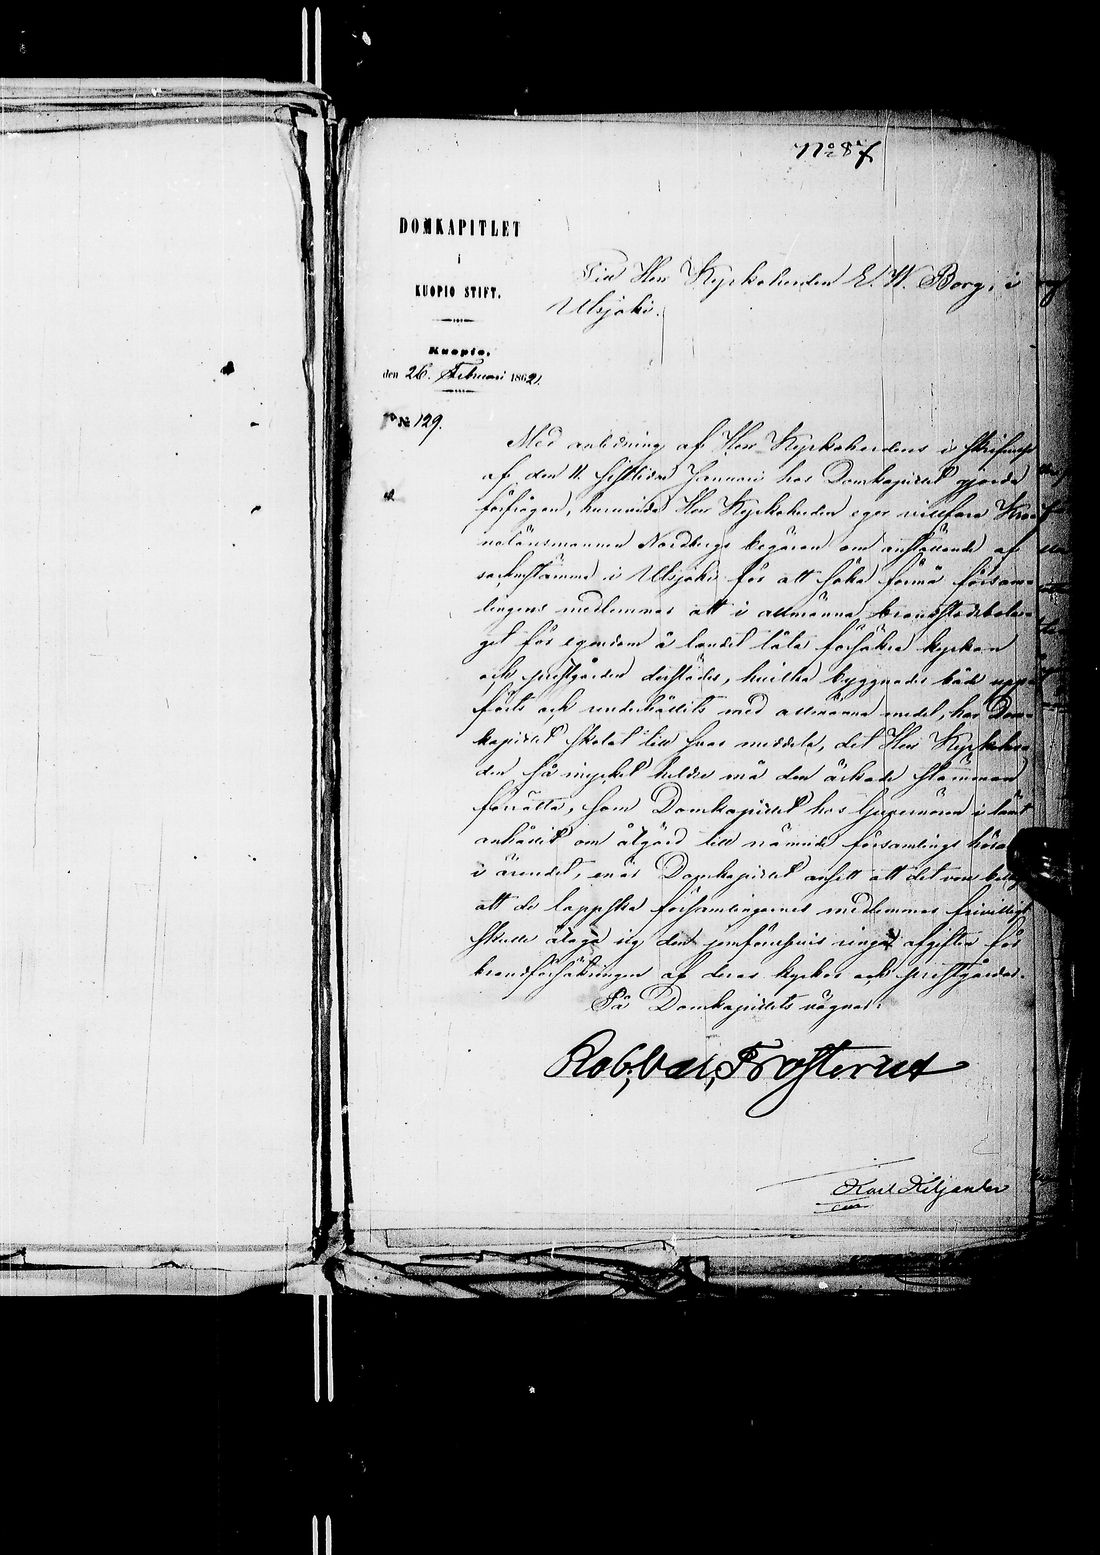 No 87
DOMKAPITLET
i
KUOPIO STIFT.
Kuopio,
den 26. Februari 1862.
No 129.
Till Herr Kyrkoherden E. W. Borg, i
Utsjoki.
Med anledning af Herr Kyrkoherdens i skrifvelse
af den 11 sistlidne Januari hos Domkapitlet gjorda
förfrågan, huruvida Herr Kyrkoherden eger villfara Kro-
nolänsmannen Nordbergs begäran om anställande af
sockenstämma i Utsjoki för att söka förmå försam-
lingens medlemmar att i allmänna brandstodsbola-
get för egendom å landet låta försäkra kyrkan
och prestgården derstädes, hvilka byggnader både upp-
förts och underhållits med allmänna medel, har Dom-
kapitlet skolat till svar meddela, det Herr Kyrkoher-
den så mycket heldre må den äskade stämman
förrätta, som Domkapitlet hos Guvernören i länet
anhållit om åtgärd till nämnde församlings hörande
i ärendet, enär Domkapitlet ansett att det vore
att de lappska församlingarnes medlemmar frivilligt
skulle åtaga sig den jemförelsevis ringa afgiften för
brandförsäkringen af deras kyrkor och prestgårdar.
På Domkapitlets vägnar:
Rob. Val. Frosterus
Karl Kiljander